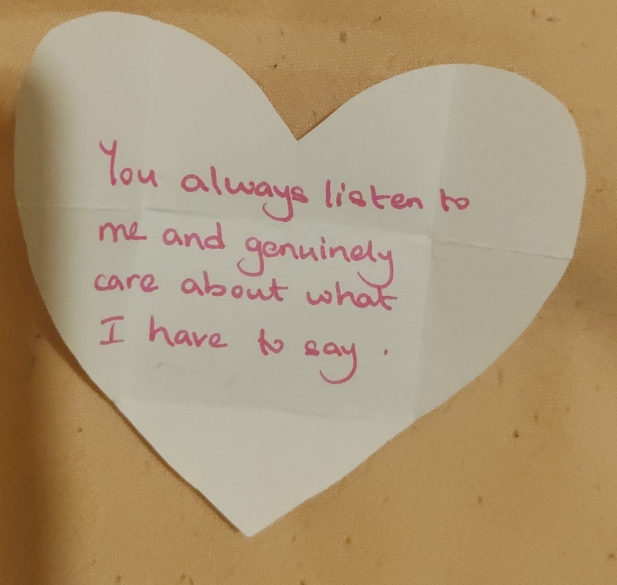 You always listen to
me and genuinely
care about what
I have to say.